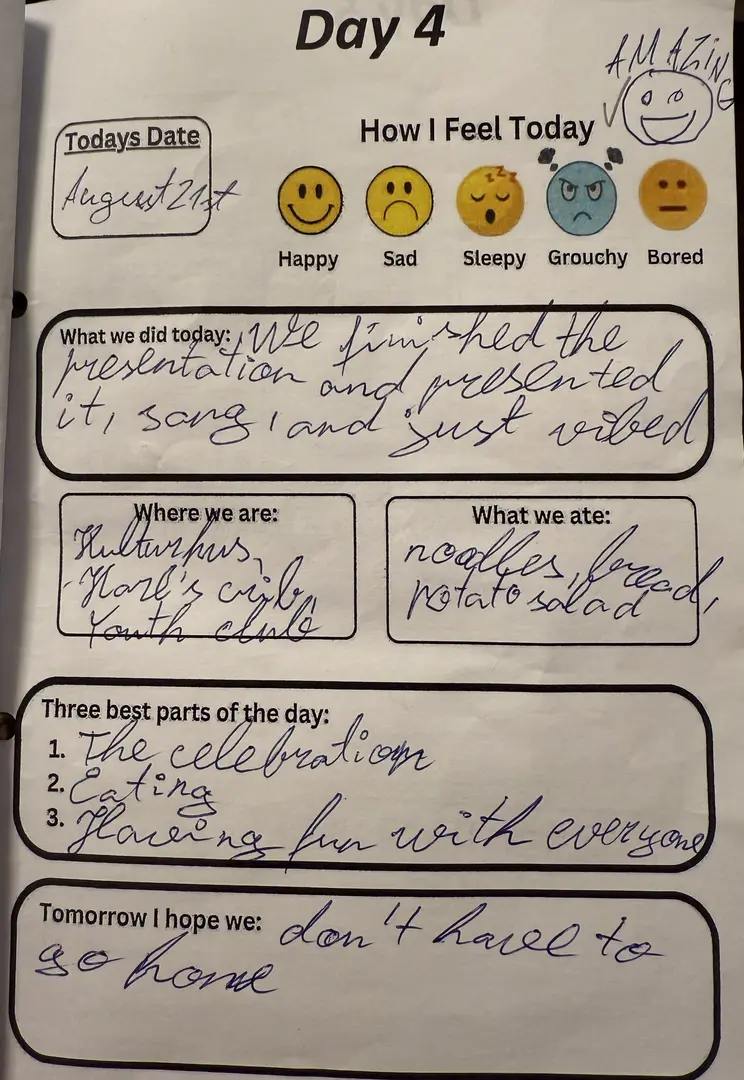 Day 4
AMAZING
Todays Date
August 21st
How I Feel Today
Happy Sad Sleepy Grouchy Bored
What we did today: We finished the
presentation and presented
it, sang, and just vibed
Where we are:
Kulturhus,
Karl's crib,
Youth club
What we ate:
noodles, bread,
potato salad
Three best parts of the day:
1. The celebration
2. Eating
3. Having fun with everyone
Tomorrow I hope we: don't have to
go home